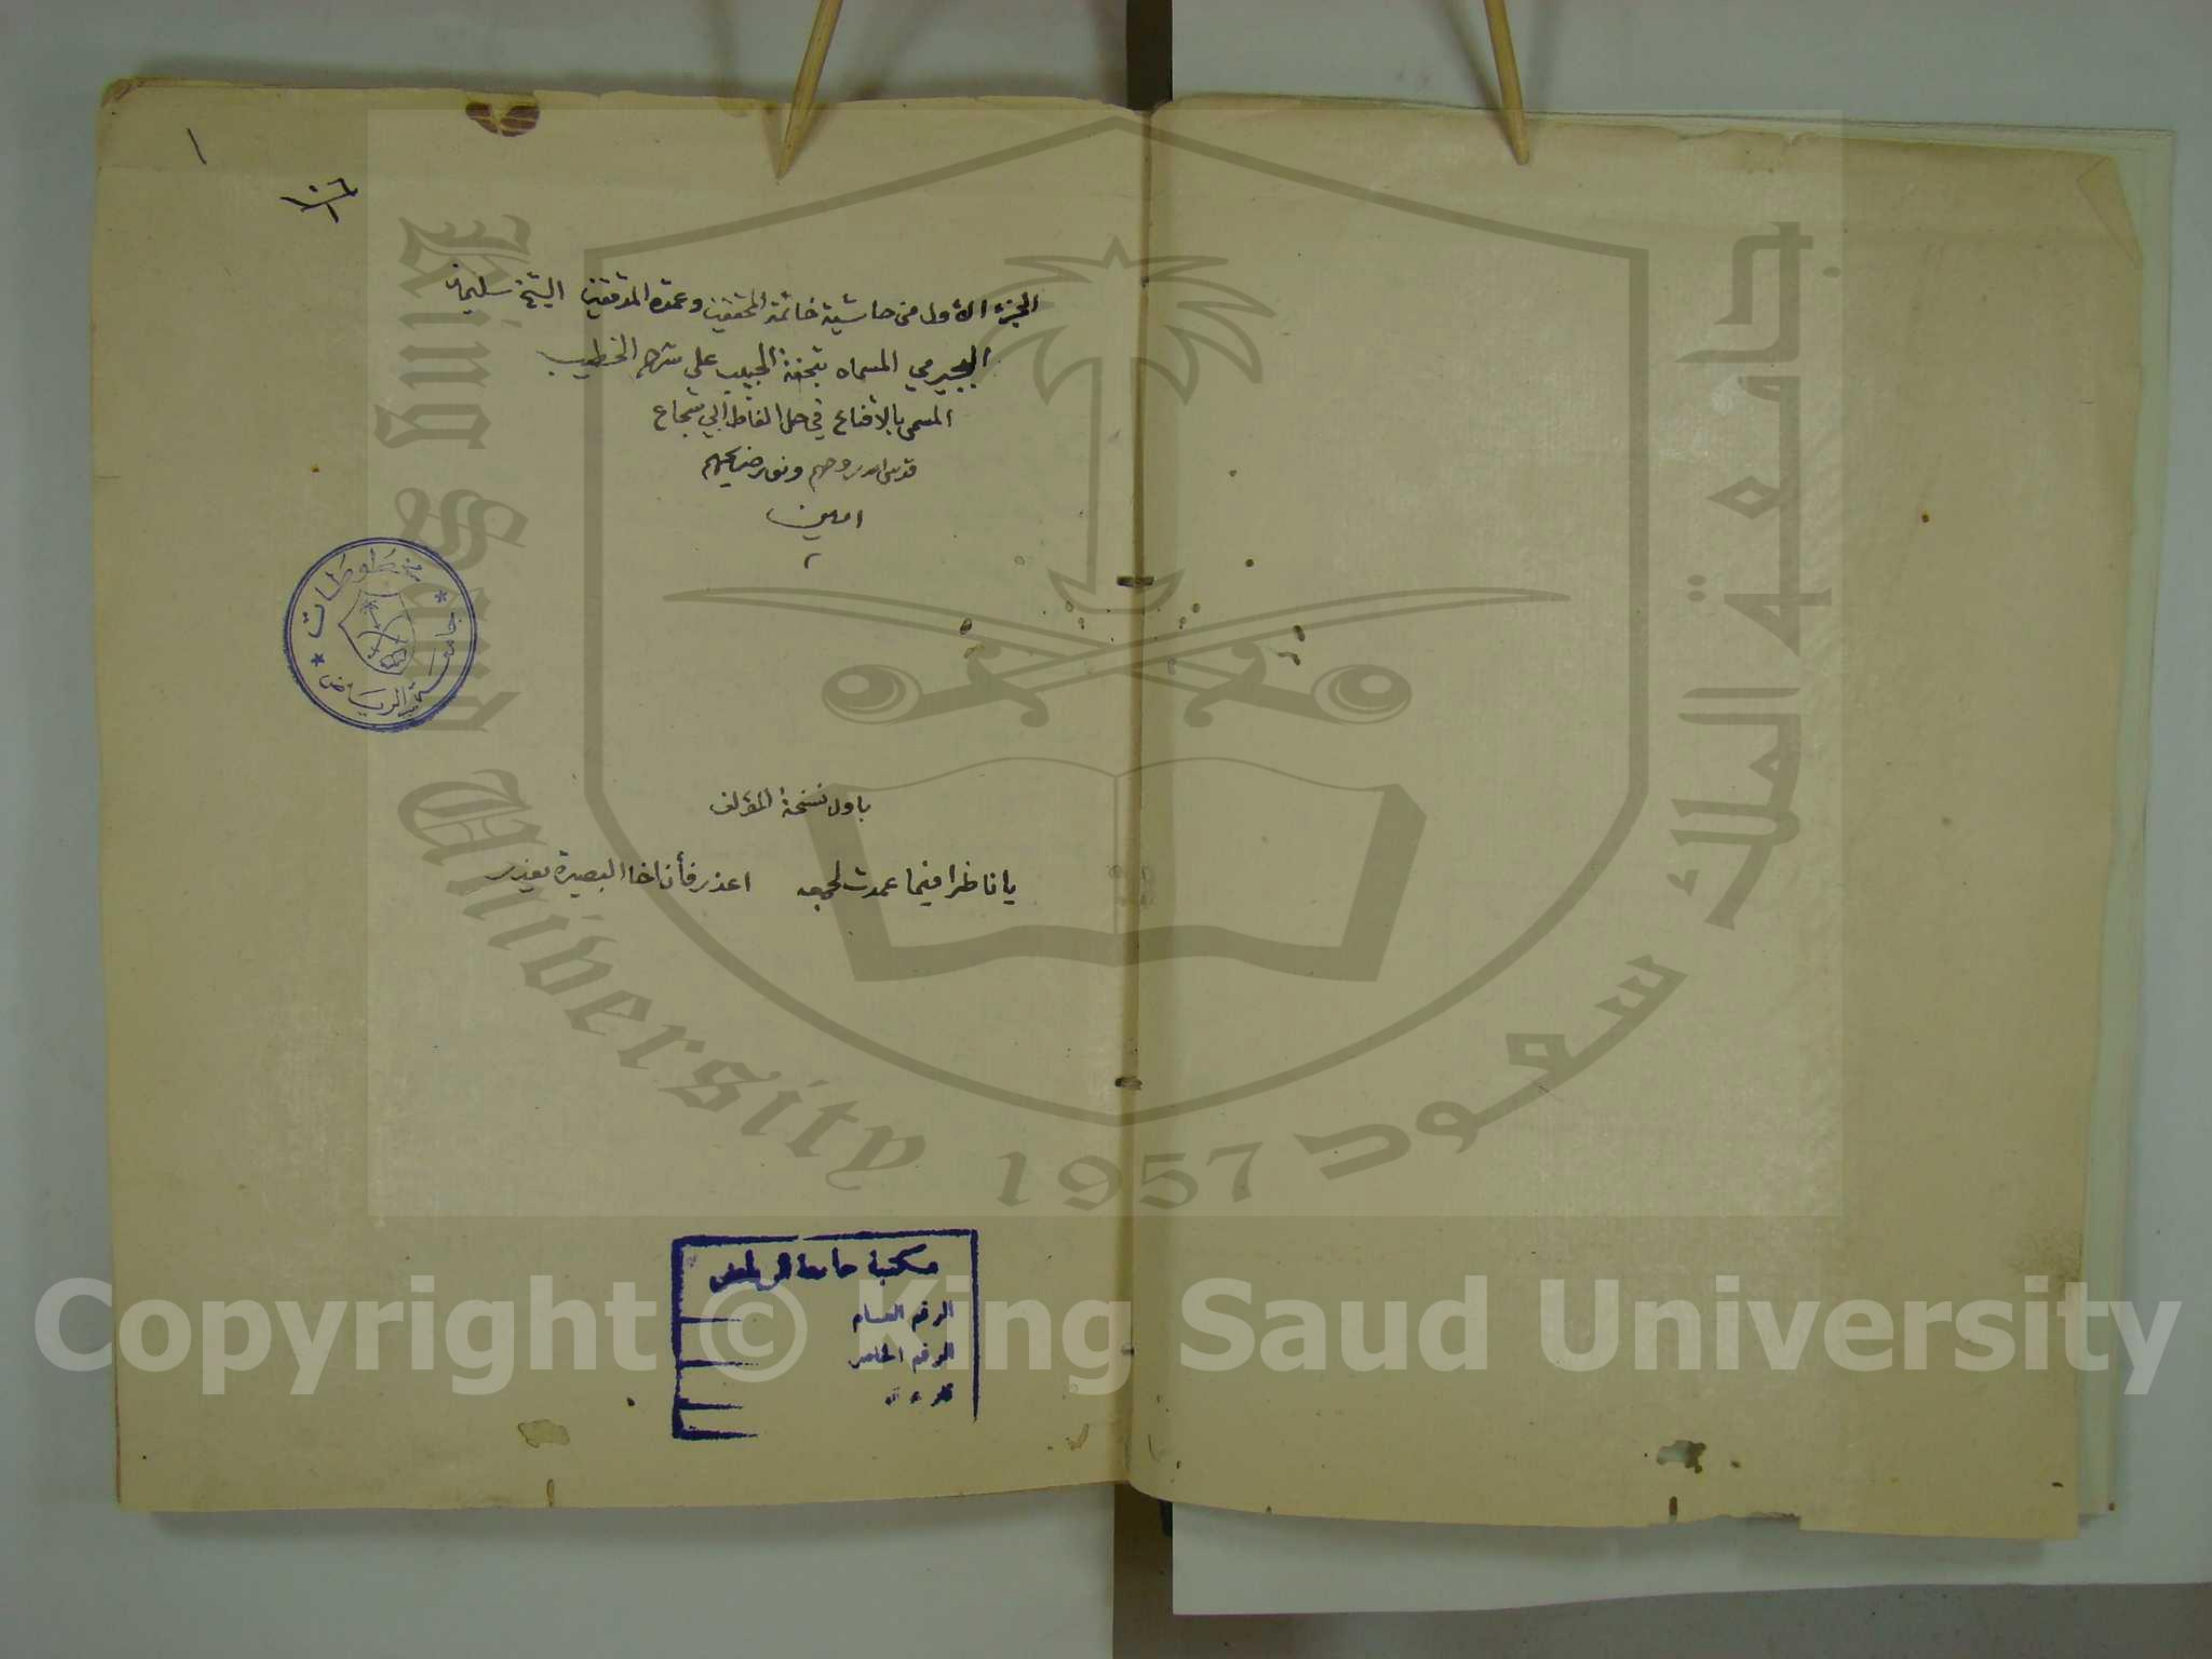 ١
١٠٦
١
الجزء الأول من حاشية خاتمة المحققين وعمدة المدققين الشيخ سليمان
البجيرمي المسماه بتحفة الحبيب على شرح الخطيب
المسمى بالاقناع في حل الفاظ أبي شجاع
قدس الله روحهم ونور ضريحهم
امين
مخطوطات
جامعة الرياض
باول نسخة المؤلف
يا ناظرا فيما عمدت لجمعه اعذر فأن اخا البصيرة يعذر
مكتبة جامعة الرياض
الرقم العام
الرقم الخاص
King Saud University 1957 جامعة الملك سعود
Copyright © King Saud University